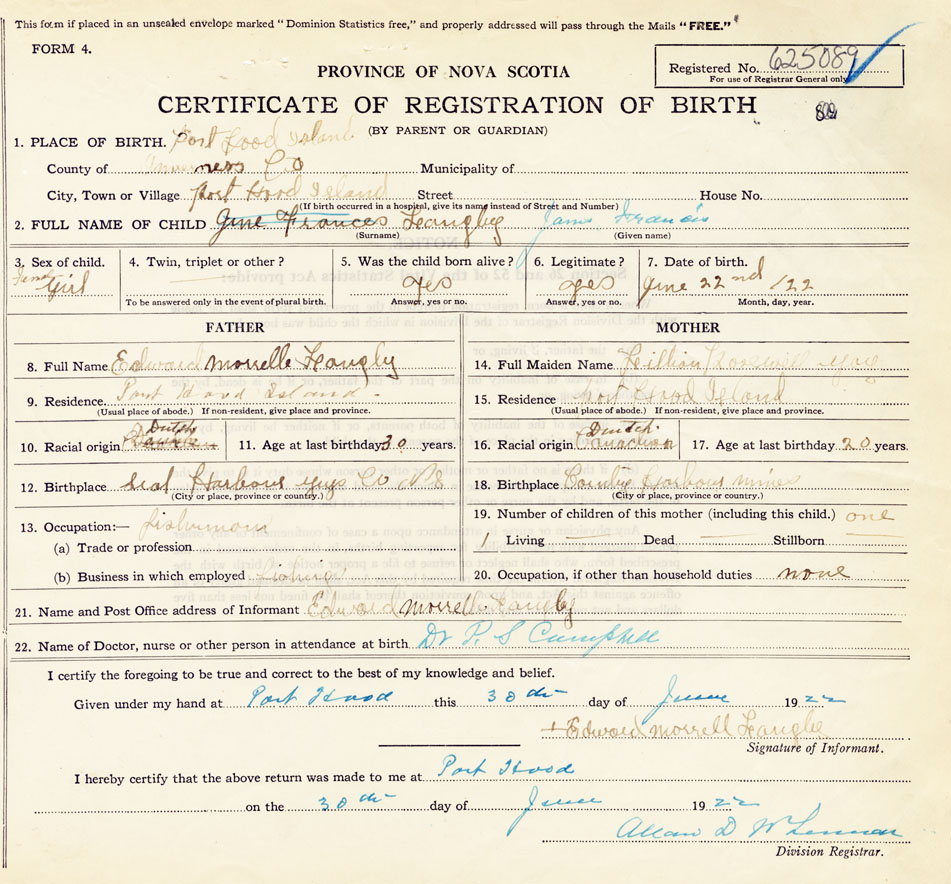 This form if placed in an unsealed envelope marked "Dominion Statistics free," and properly addressed will pass through the Mails "FREE."
FORM 4.
Registered No. 625089
For use of Registrar General only
PROVINCE OF NOVA SCOTIA
CERTIFICATE OF REGISTRATION OF BIRTH
(BY PARENT OR GUARDIAN)
1. PLACE OF BIRTH. Port Hood Island
County of Inverness Co Municipality of
City, Town or Village Port Hood Island Street House No.
(If birth occurred in a hospital, give its name instead of Street and Number)
2. FULL NAME OF CHILD June Frances Langley Francis
(Surname) (Given name)
3. Sex of child. 4. Twin, triplet or other? 5. Was the child born alive? 6. Legitimate? 7. Date of birth.
Girl yes yes June 22nd /22
To be answered only in the event of plural birth. Answer, yes or no. Answer, yes or no. Month, day, year.
FATHER MOTHER
8. Full Name Edward Morrelle Langly 14. Full Maiden Name Lillian
9. Residence. Port Hood Island 15. Residence Port Hood Island
(Usual place of abode.) If non-resident, give place and province. (Usual place of abode.) If non-resident, give place and province.
10. Racial origin Dutch 11. Age at last birthday 30 years. 16. Racial origin Dutch Canadian 17. Age at last birthday 20 years.
12. Birthplace Seal Harbour Guys Co N S 18. Birthplace Harbour mines
(City or place, province or country.) (City or place, province or country.)
13. Occupation:— fisherman 19. Number of children of this mother (including this child.) one
(a) Trade or profession 1 Living Dead Stillborn
(b) Business in which employed fishing 20. Occupation, if other than household duties none
21. Name and Post Office address of Informant Edward Morrelle Langly
22. Name of Doctor, nurse or other person in attendance at birth Dr P. S Campbell
I certify the foregoing to be true and correct to the best of my knowledge and belief.
Given under my hand at Port Hood this 30th day of June 1922
Edward Morrell Langle
Signature of Informant.
I hereby certify that the above return was made to me at Port Hood
on the 30th day of June 1922
Allan D McLennan
Division Registrar.